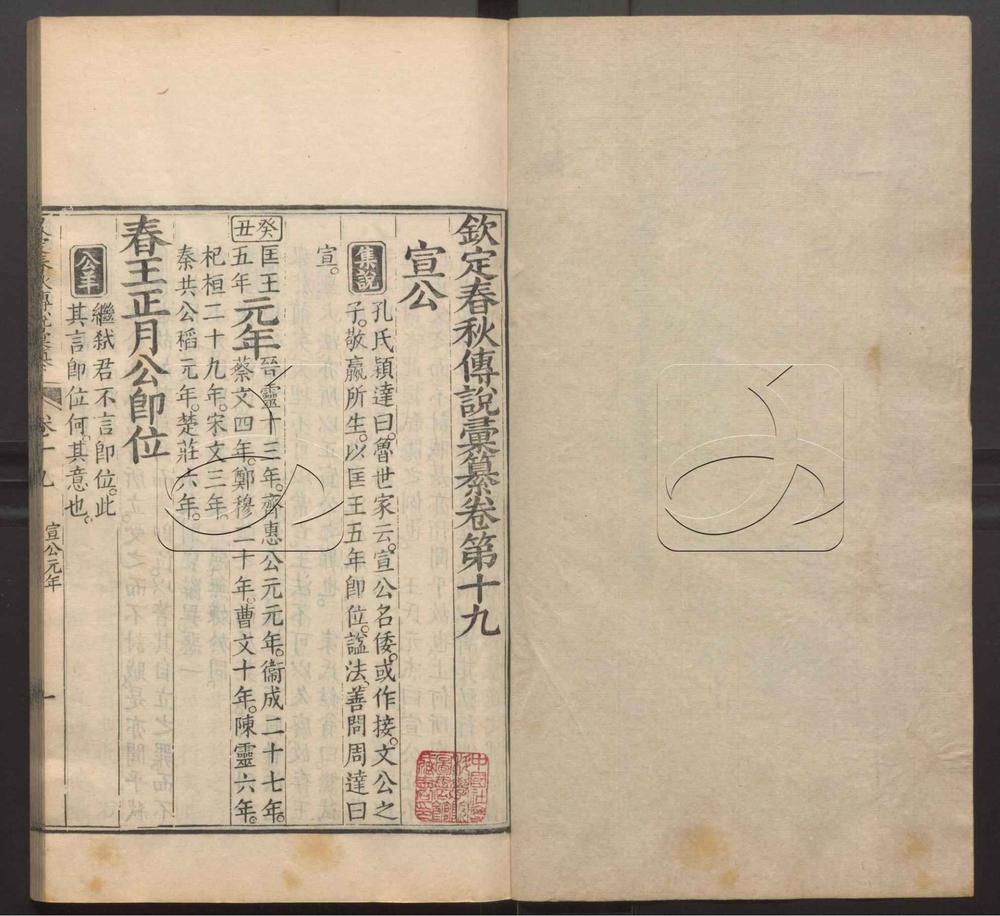 欽定春秋傳說彙纂卷第十九
宣公
集說
孔氏穎達曰魯世家云宣公名倭或作接文公之
子敬嬴所生以匡王五年即位諡法善問周達曰
宣
癸丑
匡王五年
元年
晉靈十三年齊惠公元元年衞成二十七年
蔡文四年鄭穆二十年曹文十年陳靈六年
杞桓二十九年宋文三年
秦共公稻元年楚莊六年
春王正月公即位
公羊
繼弒君不言即位此
其言即位何其意也
卷十九
宣公元年
一